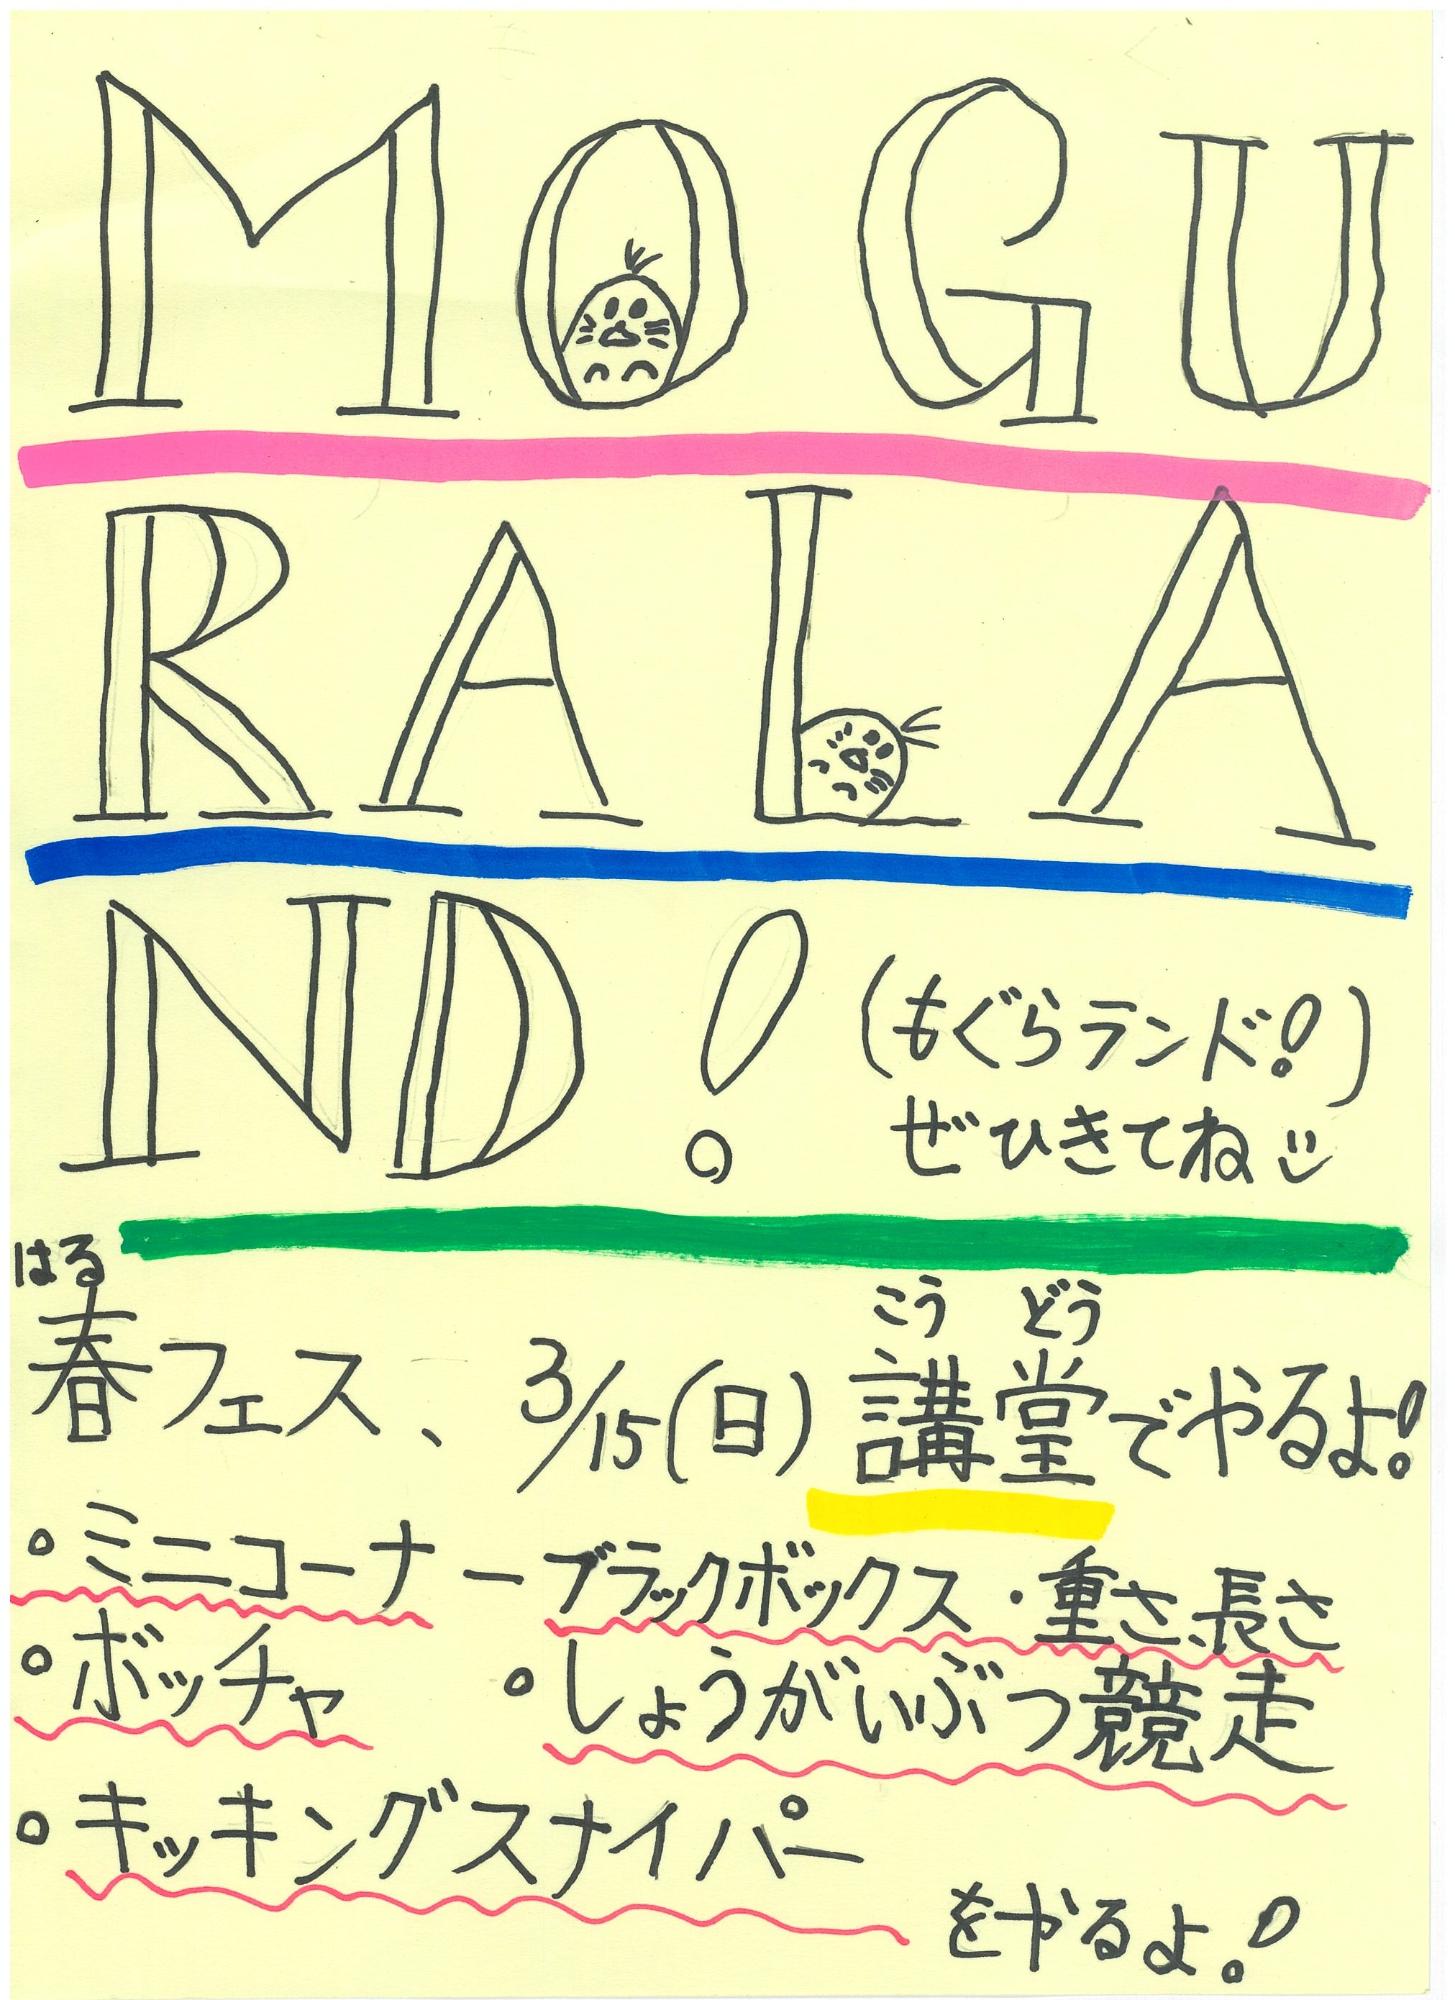 MOGU
RALA
ND!
(もぐらランド!)
ぜひきてね
はる
こうどう
春フェス、3/15(日)講堂でやるよ!
。ミニコーナーブラックボックス・重さ、長さ
。ボッチャ 。しょうがいぶつ競走
。キッキングスナイパー
をやるよ!